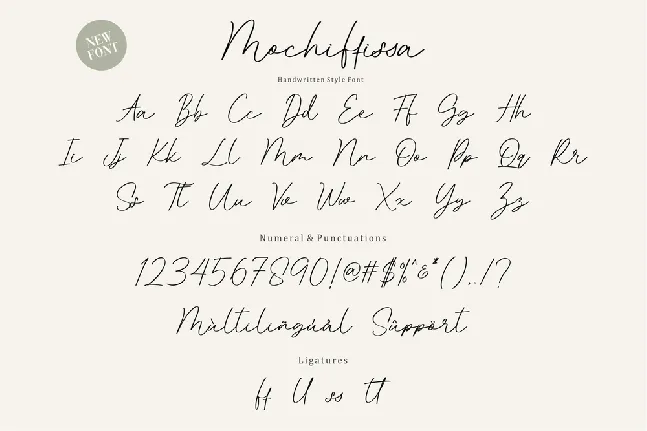 NEW
FONT
Mochiffissa
Handwritten Style Font
Aa Bb Cc Dd Ee Ff Gg Hh
Ii Jj Kk Ll Mm Nn Oo Pp Qq Rr
Ss Tt Uu Vv Ww Xx Yy Zz
Numeral & Punctuations
1234567890!@#$%^&*()../?
Mùltilìngúàl Sâppört
Ligatures
ff ll ss tt